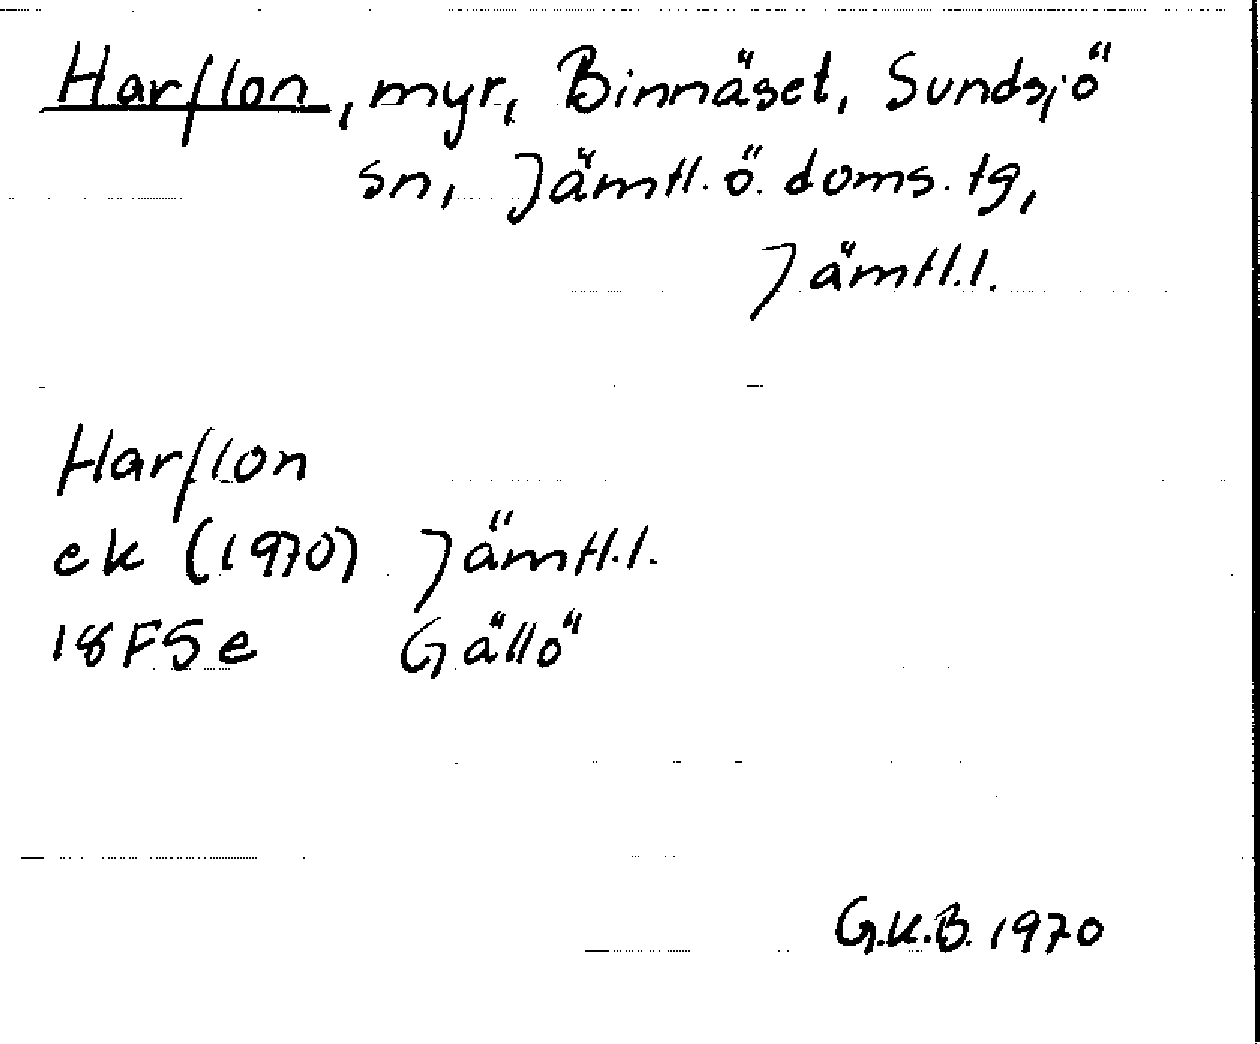 Harflon, myr, Binnäset, Sundsjö
sn, Jämtl. ö. doms. tg,
Jämtl.l.
Harflon
ek (1970) Jämtl.l.
18F5e Gällö
G.K.B. 1970